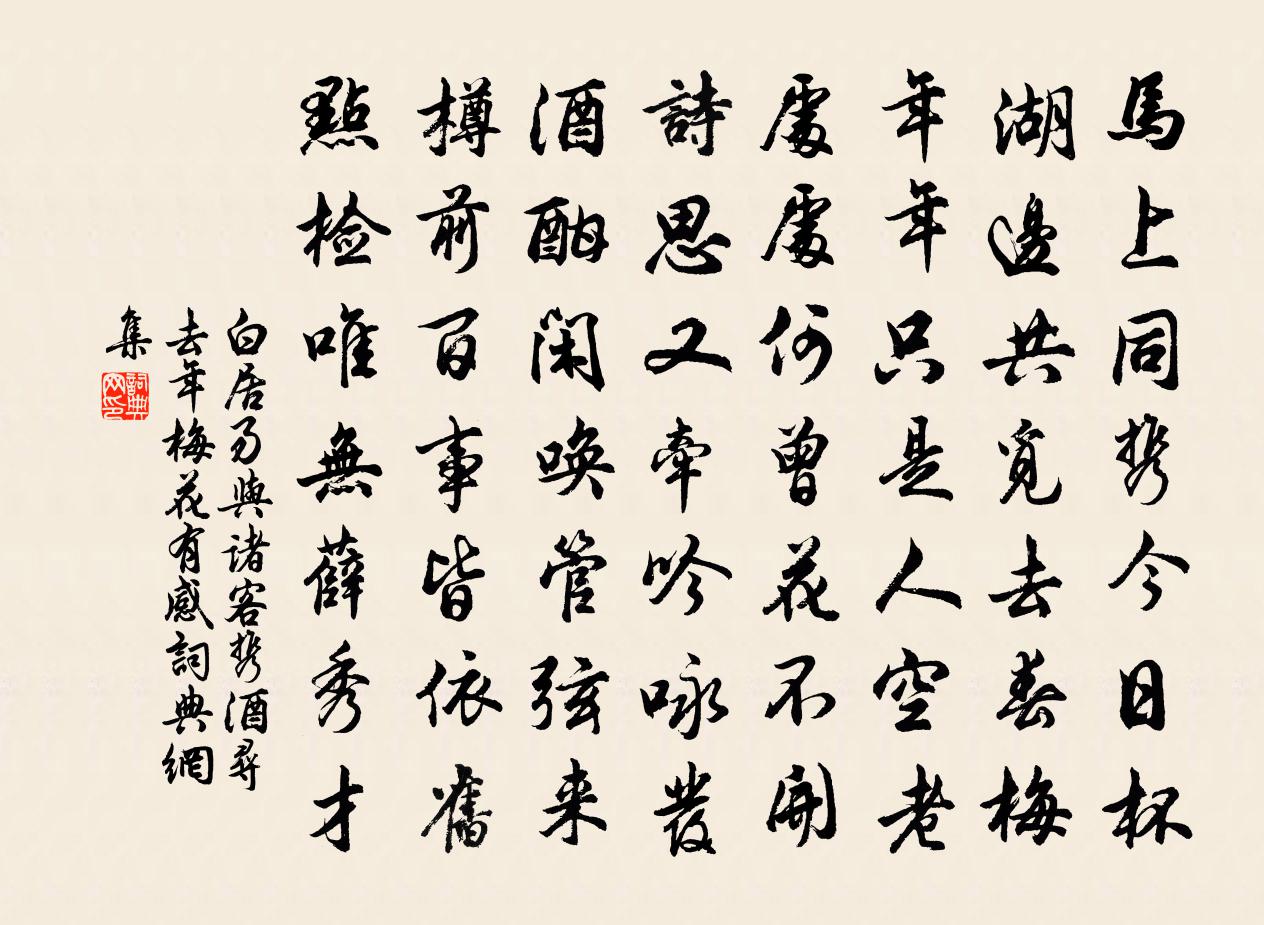 馬上同攜今日杯
湖邊共覓去春梅
年年只是人空老
處處何曾花不開
詩思又牽吟咏發
酒酣閑喚管弦来
樽前百事皆依舊
點檢唯無薛秀才
白居易與諸客攜酒尋
去年梅花有感詞典網
集
詞典
网印